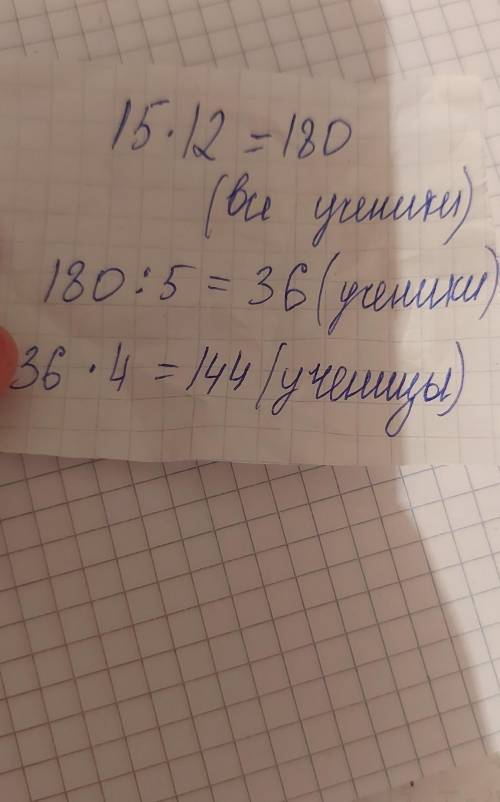 15·12=180
(все ученики)
180:5=36(ученики)
36·4=144(ученицы)